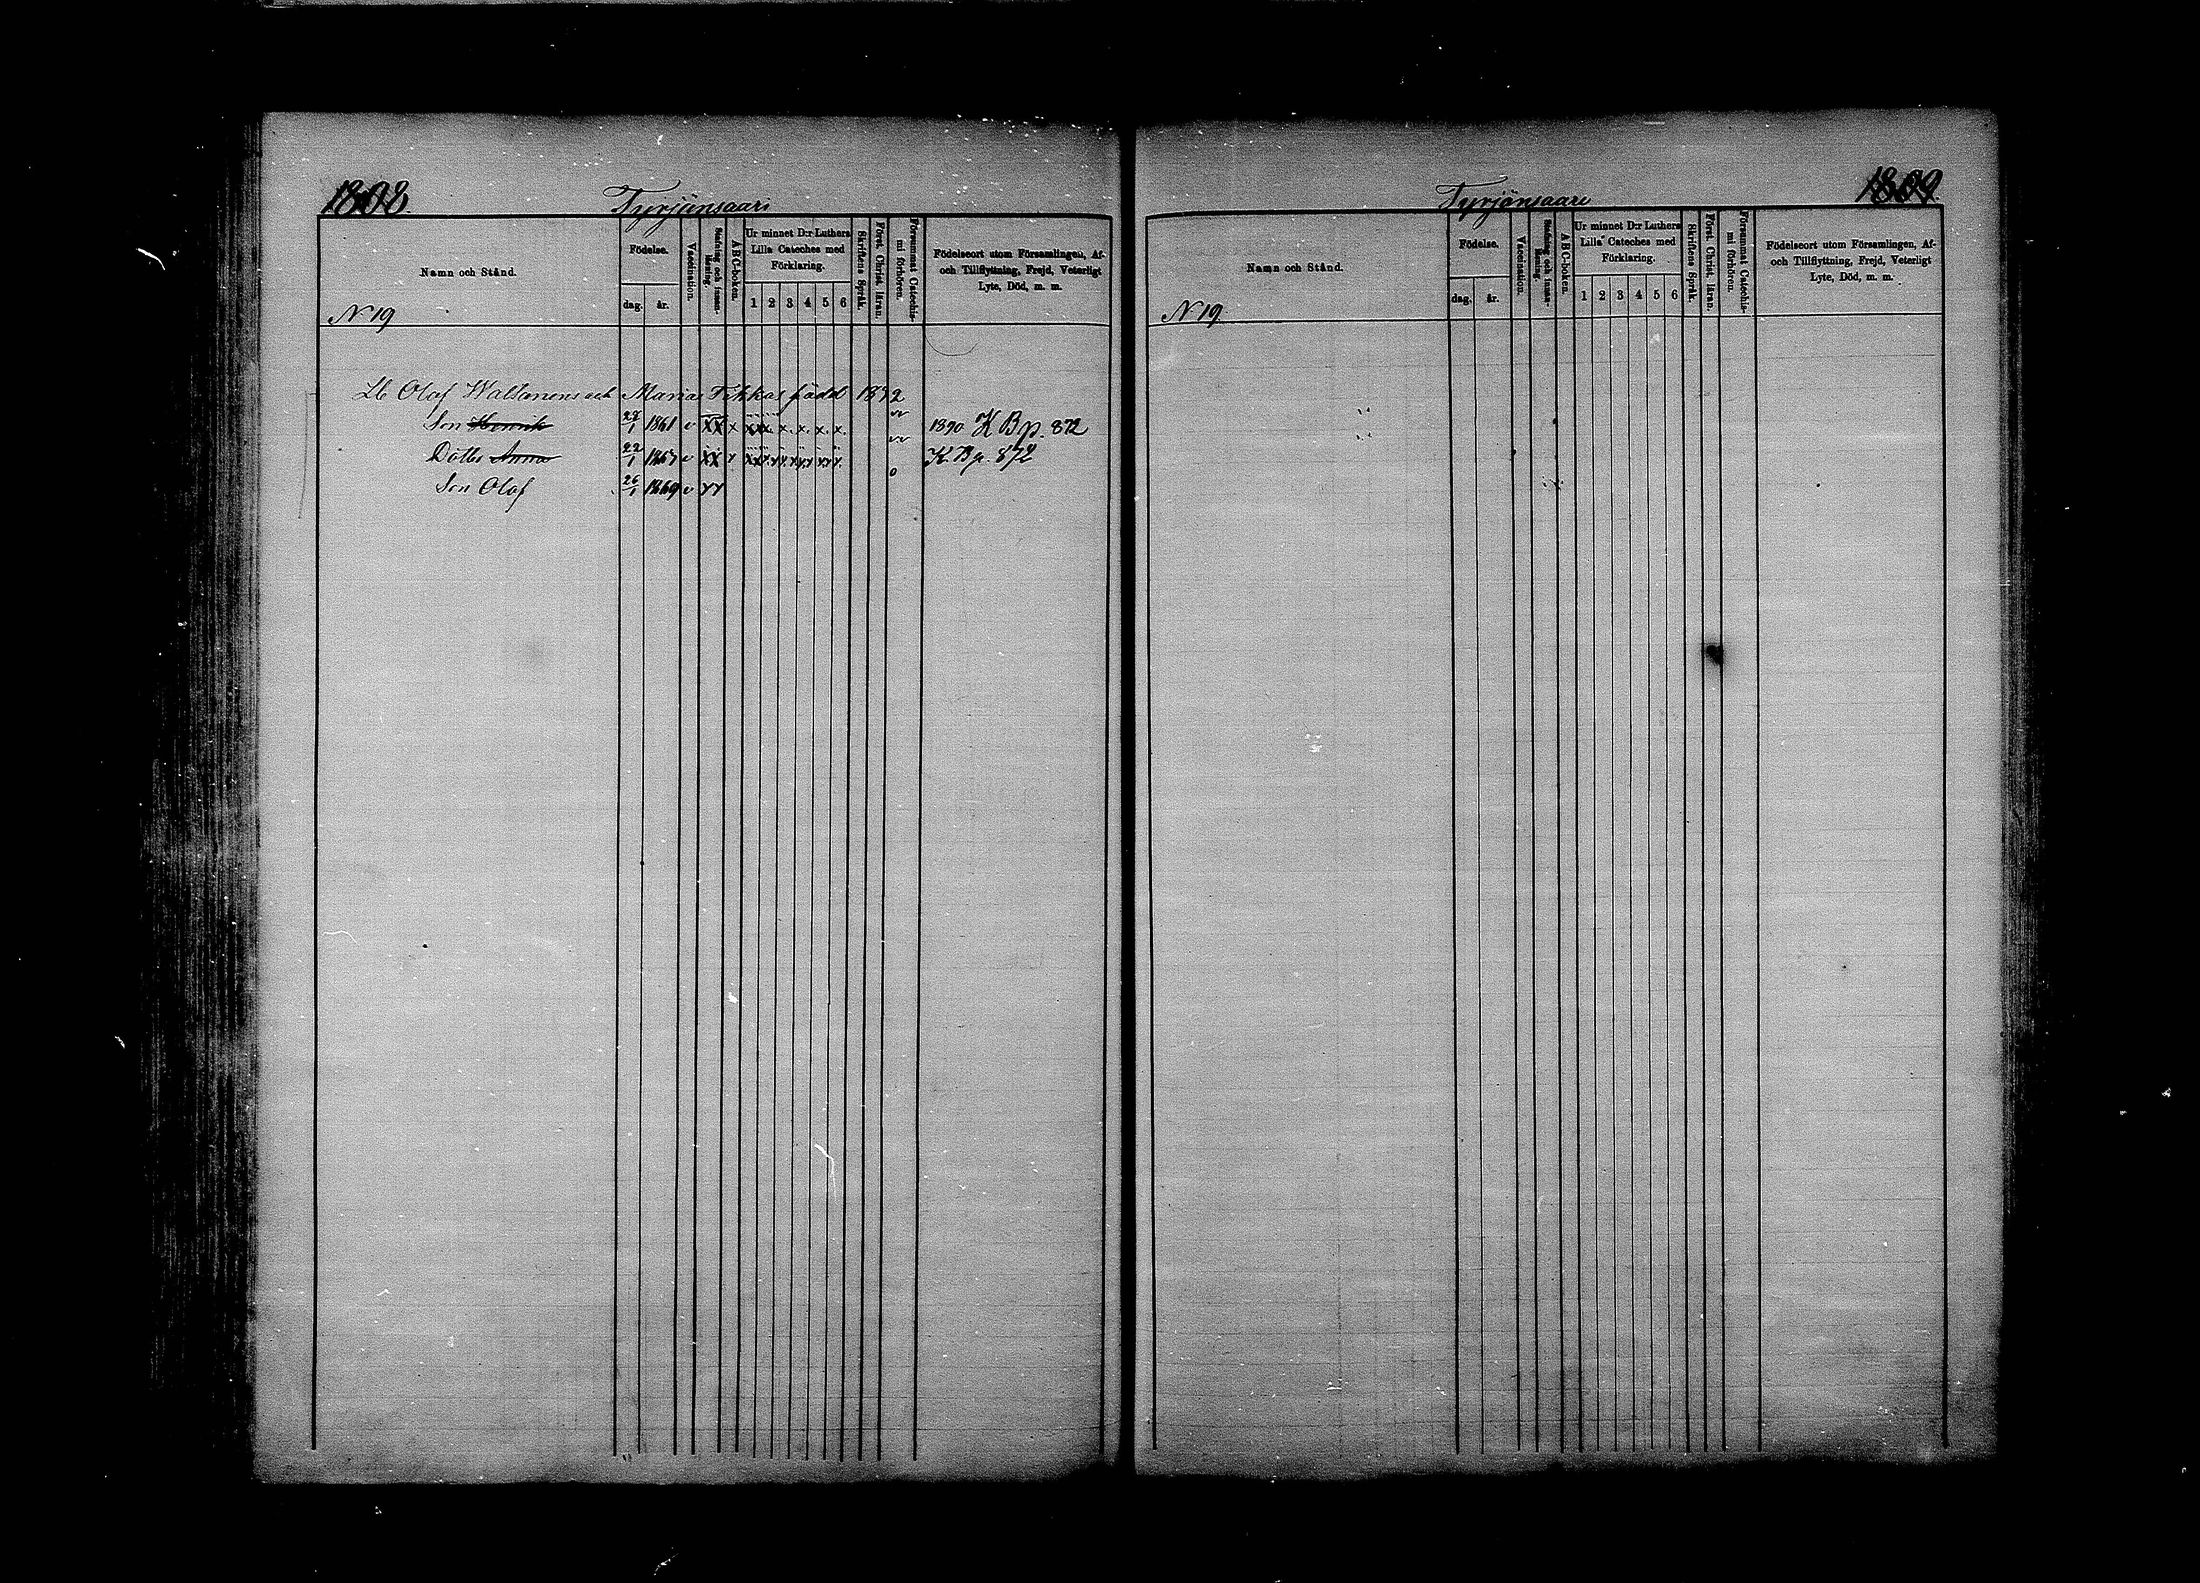 1808.
Tyrjänsaari
Namn och Stånd.
Födelse.
dag.
år.
Vaccination.
Stafning och Innan-
läsning.
ABC-boken.
Ur minnet D:r Luthers
Lilla Cateches med
Förklaring.
1 2 3 4 5 6
Skriftens Språk.
Först. Christ. läran.
Försummat Catechis-
mi förhören.
Födelseort utom Församlingen, Af-
och Tillflyttning, Frejd, Veterligt
Lyte, Död, m. m.
N 19
Lb Olof Waltonens och Maria född
Son Henrik 27/1 1861 v XX x xxx. x. x. x. x. 1890 K B p. 872
Dotter Anna 22/1 v XX K. B p. 872
Son Olof 26/1 1869 v
1809.
Tyrjänsaari
Namn och Stånd.
Födelse.
dag.
år.
Vaccination.
Stafning och Innan-
läsning.
ABC-boken.
Ur minnet D:r Luthers
Lilla Cateches med
Förklaring.
1 2 3 4 5 6
Skriftens Språk.
Först. Christ. läran.
Försummat Catechis-
mi förhören.
Födelseort utom Församlingen, Af-
och Tillflyttning, Frejd, Veterligt
Lyte, Död, m. m.
N 19